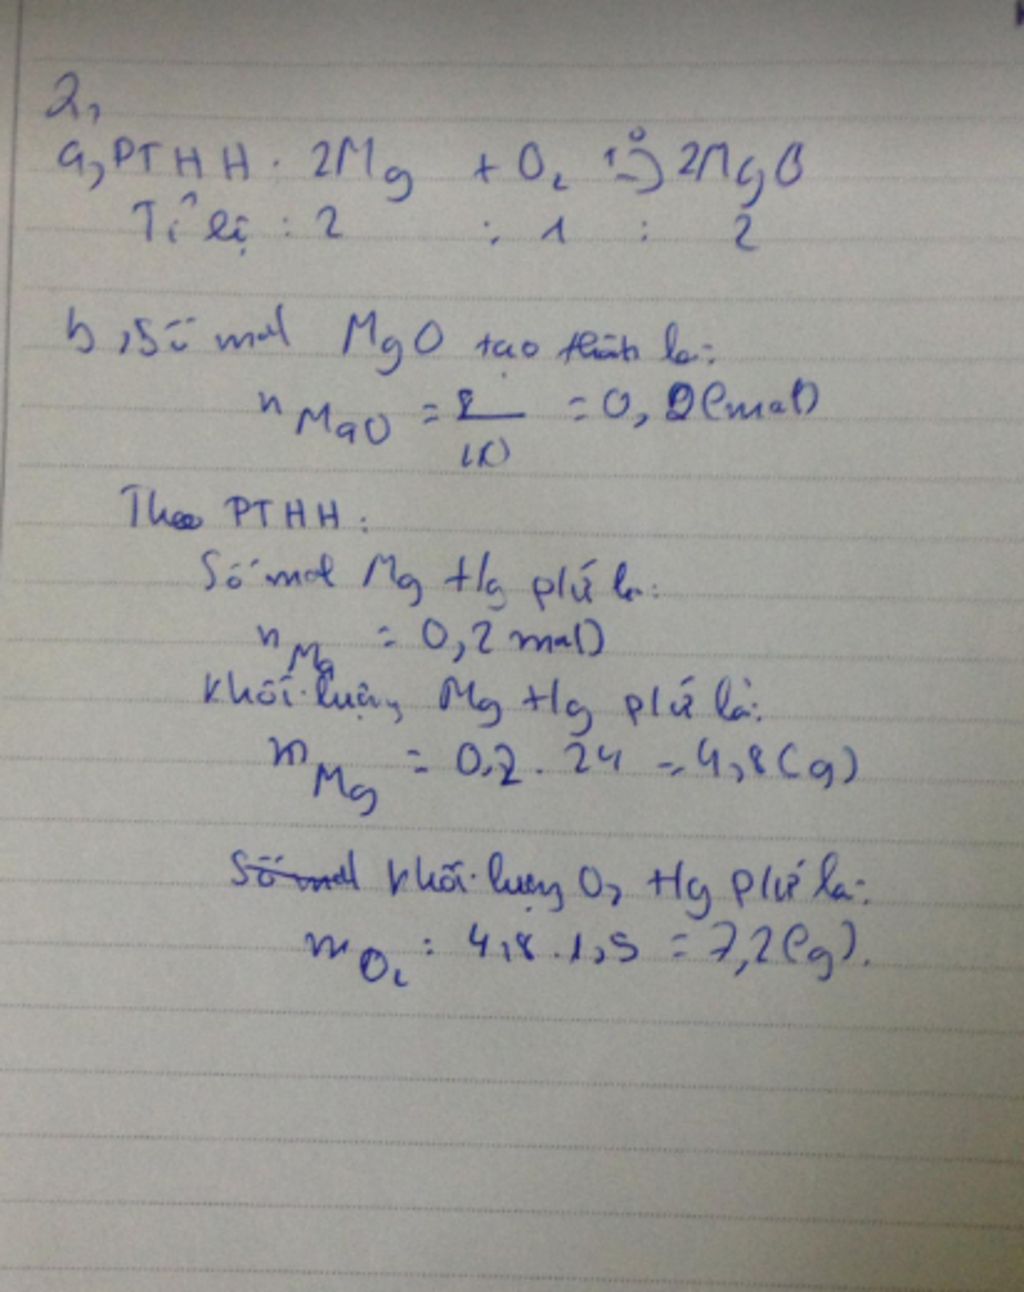 2,
a, PTHH: 2Mg + O₂ t°→ 2MgO
Tỉ lệ: 2 : 1 : 2
b, Số mol MgO tạo thành là:
n MgO = = 0,2(mol)
Theo PTHH:
Số mol Mg tg pứ là:
n Mg = 0,2 mol)
Khối lượng Mg tg pứ là:
m Mg = 0,2 . 24 = 4,8(g)
Số mol khối lượng O₂ tg pứ là:
m O₂ : 4,8 . 1,5 = 7,2(g).